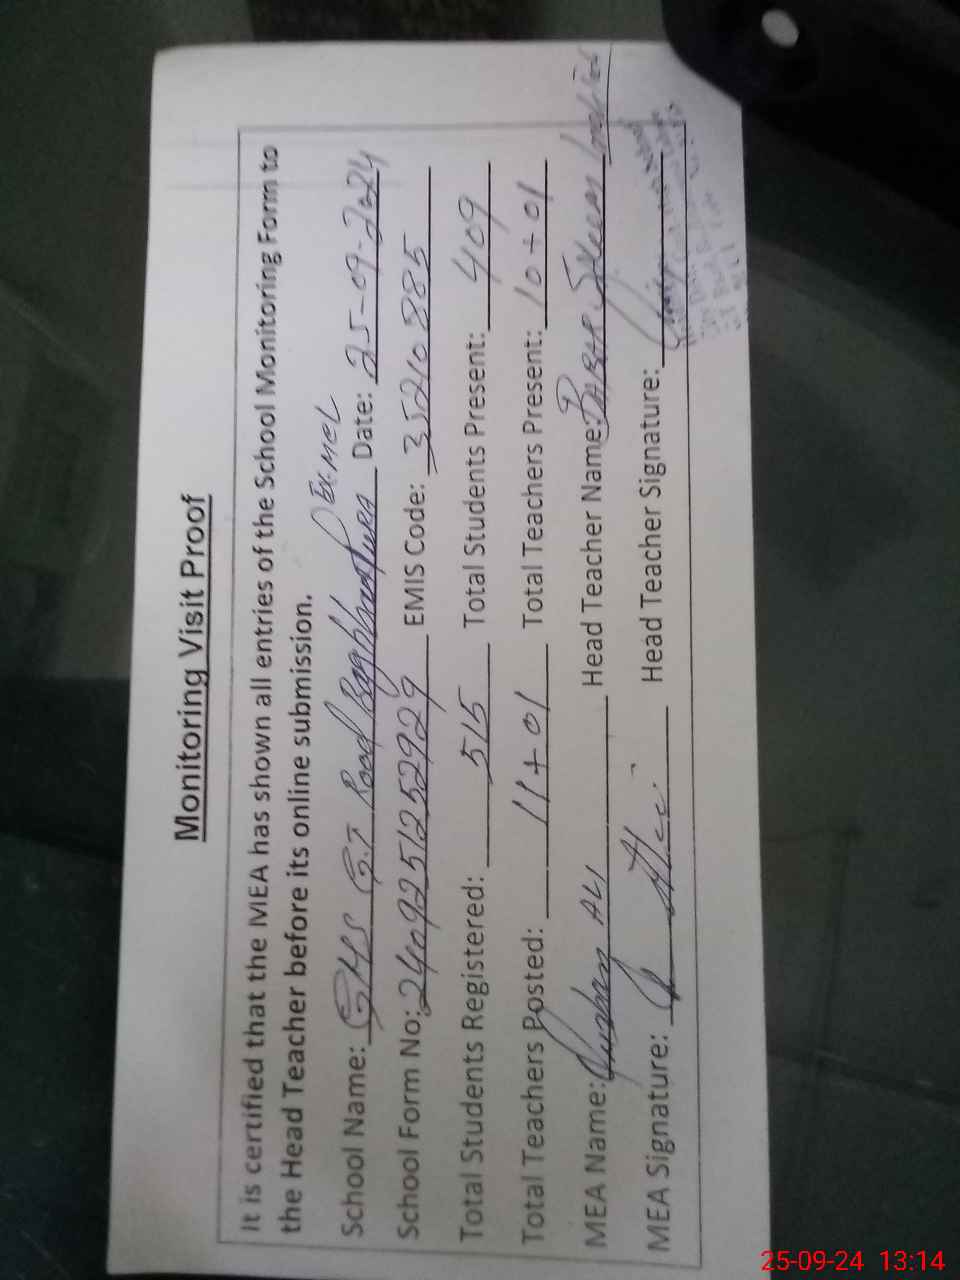 Monitoring Visit Proof
It is certified that the MEA has shown all entries of the School Monitoring Form to
the Head Teacher before its online submission.
School Name: GHS G.T Road Baghbanpura Ex.MCL Date: 25-09-2024
School Form No: 2409251252929 EMIS Code: 35210885
Total Students Registered: 515 Total Students Present: 409
Total Teachers Posted: 11+01 Total Teachers Present: 10+01
MEA Name: ALI Head Teacher Name: BABUR
MEA Signature: Head Teacher Signature:
25-09-24 13:14